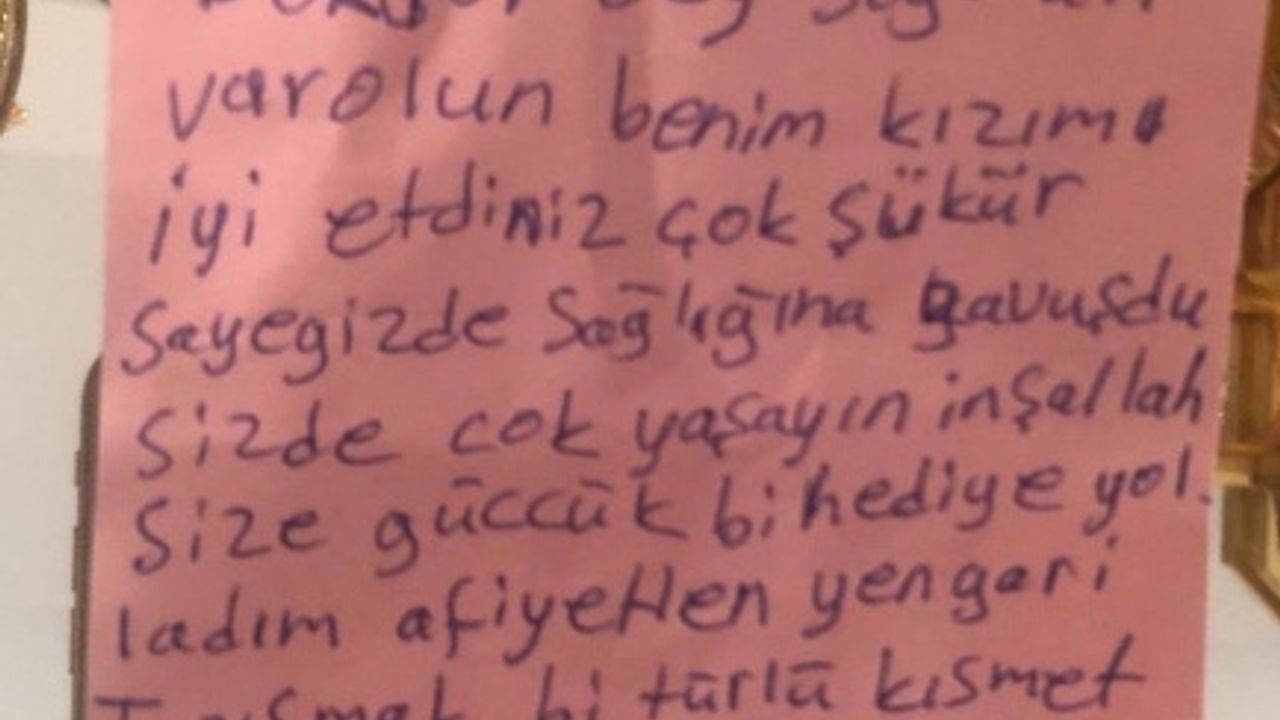 varolun benim kızımı
iyi etdiniz çok şükür
Sayegizde Sağlığına gavuşdu
Sizde cok yaşayın inşallah
Size güccük bi hediye yol.
ladım afiyetlen yengari
bi türlü kısmet